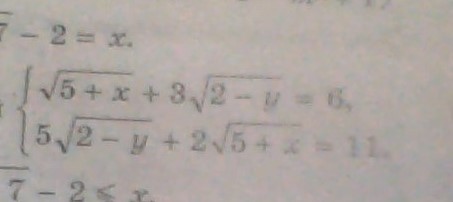 7 – 2 = x.
√5 + x + 3√2 – y = 6,
5√2 – y + 2√5 + x = 11.
7 – 2 ≤ x.